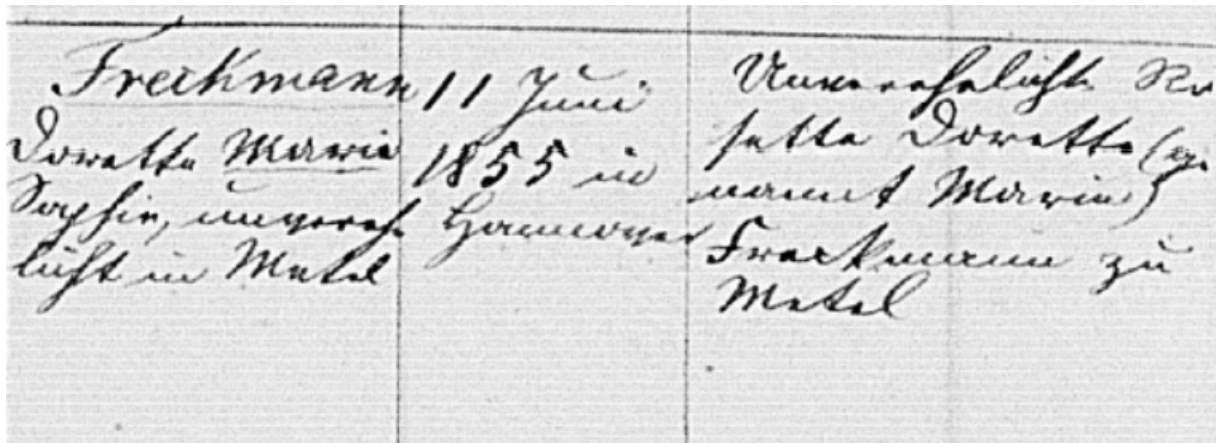 Freckmann
Dorette Marie
Sophie, unverehe
licht in Metel
11 Juni
1855 in
Hannover
Unverehelichte Ro
sette Dorette (ge
nannt Marie)
Freckmann zu
Metel